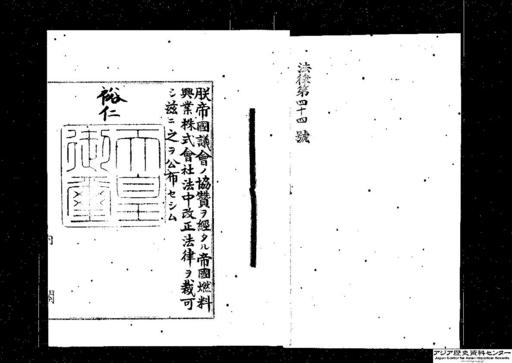 法律第四十四號
朕帝國議會ノ協贊ヲ經タル帝國燃料
興業株式會社法中改正法律ヲ裁可
シ茲ニ之ヲ公布セシム
裕仁
天皇
御璽
内閣
アジア歴史資料センター
Japan Center for Asian Historical Records